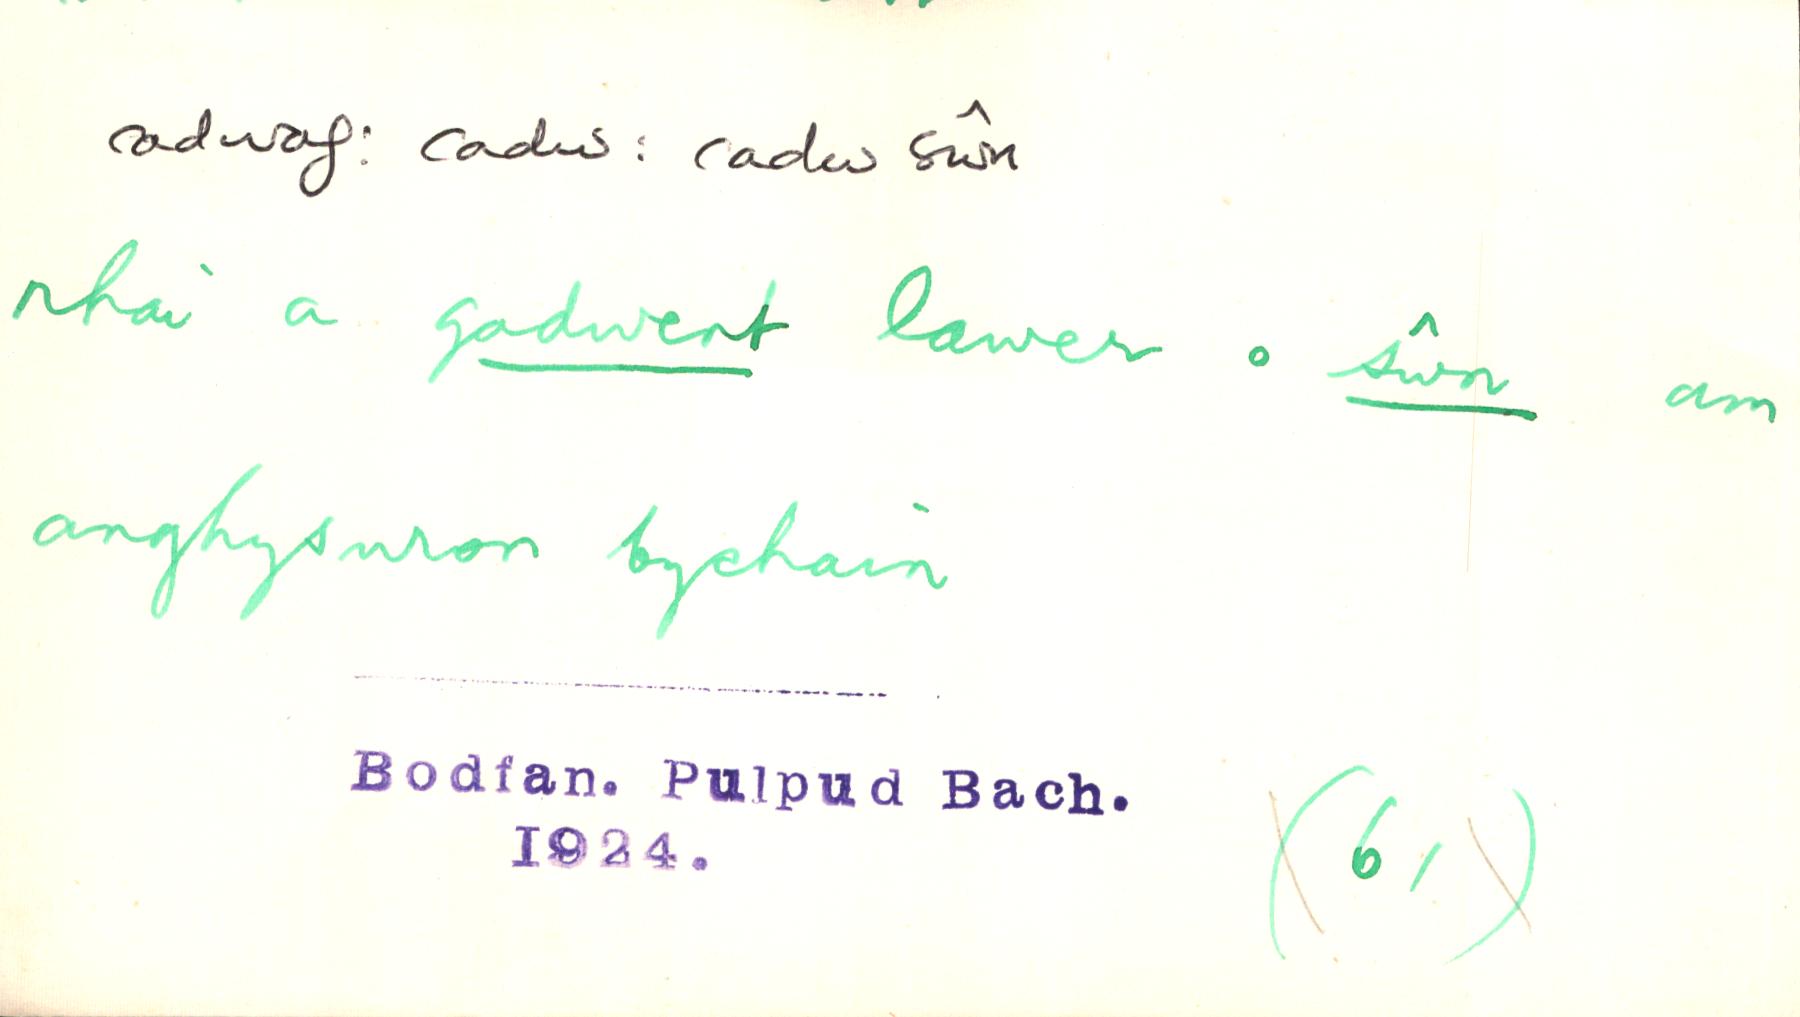 cadwaf: cadw: cadw sŵn
rhai a gadwent lawer o sŵn am
anghysuron bychain
Bodfan. Pulpud Bach.
1924.
(61)